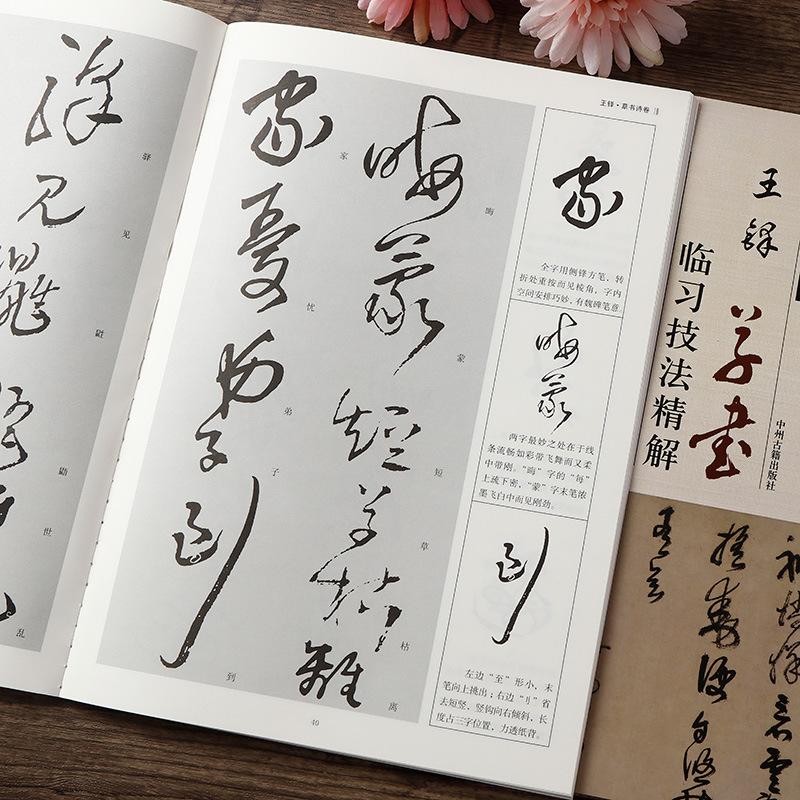 王铎·草书诗卷
晦蒙短草枯离
晦
蒙
短
草
枯
离
家忧弟子到
家
忧
弟
子
到
家
全字用侧锋方笔，转
折处重按而见棱角，字内
空间安排巧妙，有魏碑笔意
晦蒙
两字最妙之处在于线
条流畅如彩带飞舞而又柔
中带刚。“晦”字的“每”
上疏下密，“蒙”字末笔浓
墨飞白中而见刚劲。
到
左边“至”形小，末
笔向上挑出；右边“刂”省
去短竖，竖钩向右倾斜，长
度占三字位置，力透纸背。
40
驿
见
鼪
鼯
世
乱
王铎
草书
临习技法精解
中州古籍出版社